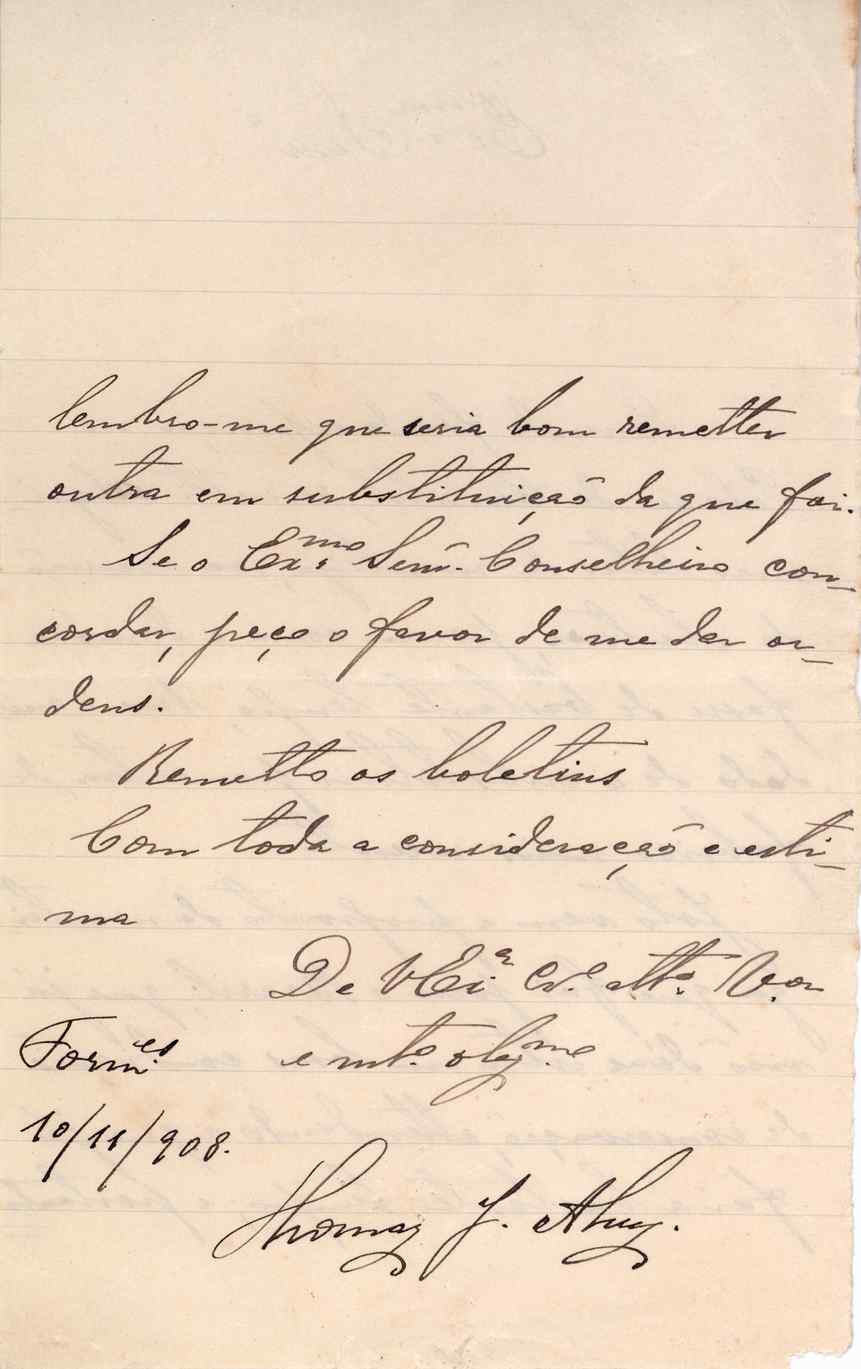 lembro-me que seria bom remetter
outra em substituição da que foi.
Se o Ex.mo Senr. Conselheiro con-
cordar, peço o favor de me dar or-
dens.
Remetto os boletins
Com toda a consideração e esti-
ma
De VExia Cr.º att.º V.or
Form.es e mt.º obg.mo
10/11/908.
Thomaz J.